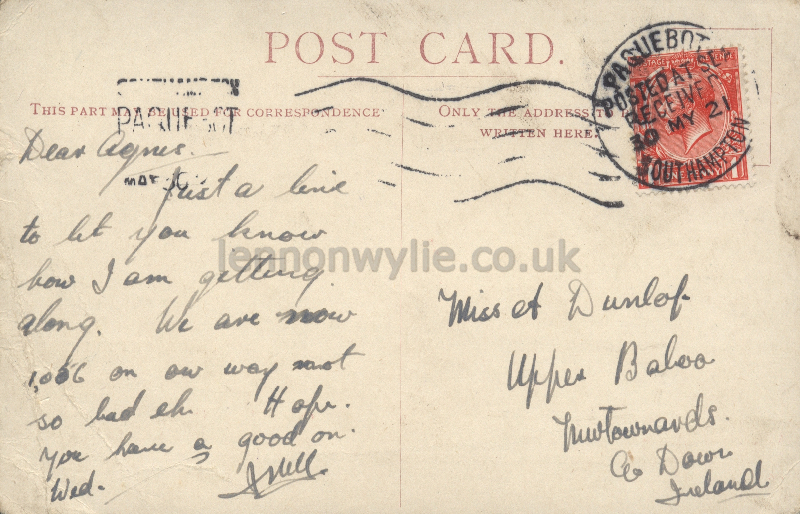 POST CARD.
SOUTHAMPTON
PAQUEBOT
PAQUEBOT
POSTED AT SEA
RECEIVED
30 MY 21
SOUTHAMPTON
POSTAGE REVENUE
THIS PART MAY BE USED FOR CORRESPONDENCE
ONLY THE ADDRESS TO BE
WRITTEN HERE.
Dear Agnes.
Just a line
to let you know
how I am getting
along. We are now
1,006 on our way not
so bad eh. Hope.
you have a good on.
Wed.
Miss A Dunlop
Upper Baloo
Newtownards.
Co Down
Ireland
lennonwylie.co.uk